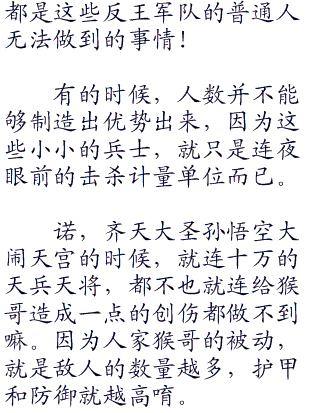 都是这些反王军队的普通人
无法做到的事情！
有的时候，人数并不能
够制造出优势出来，因为这
些小小的兵士，就只是连夜
眼前的击杀计量单位而已。
诺，齐天大圣孙悟空大
闹天宫的时候，就连十万的
天兵天将，都不也就连给猴
哥造成一点的创伤都做不到
嘛。因为人家猴哥的被动，
就是敌人的数量越多，护甲
和防御就越高唷。